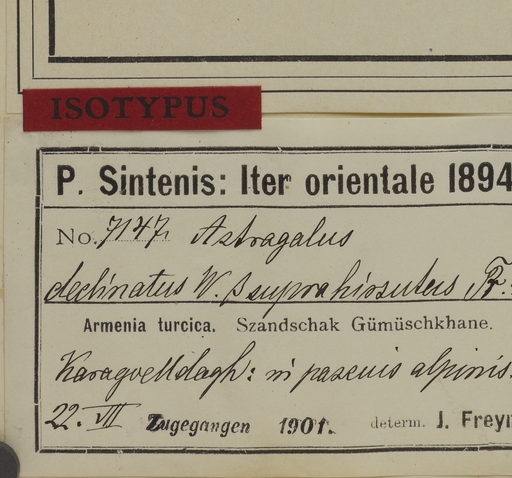 ISOTYPUS
P. Sintenis: Iter orientale 1894
No. 7147. Astragalus
declinatus W. β suprahirsutus Fr.
Armenia turcica. Szandschak Gümüschkhane.
Karagoelldagh: in pascuis alpinis.
22. VII Zugegangen 1901. determ. J. Freyn